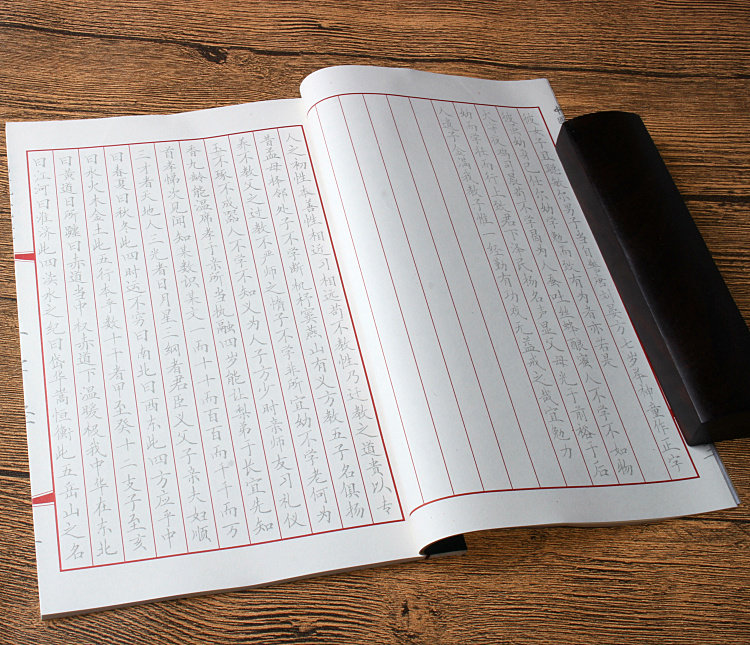 彼女子且聪敏尔男子当自警唐刘晏方七岁举神童作正字
彼虽幼身已仕尔幼学勉而致有为者亦若是
犬守夜鸡司晨苟不学曷为人蚕吐丝蜂酿蜜人不学不如物
幼而学壮而行上致君下泽民扬名声显父母光于前裕于后
人遗子金满我教子惟一经勤有功戏无益戒之哉宜勉力
人之初性本善性相近习相远苟不教性乃迁教之道贵以专
昔孟母择邻处子不学断机杼窦燕山有义方教五子名俱扬
养不教父之过教不严师之惰子不学非所宜幼不学老何为
玉不琢不成器人不学不知义为人子方少时亲师友习礼仪
香九龄能温席孝于亲所当执融四岁能让梨弟于长宜先知
首孝悌次见闻知某数识某文一而十十而百百而千千而万
三才者天地人三光者日月星三纲者君臣义父子亲夫妇顺
曰春夏曰秋冬此四时运不穷曰南北曰西东此四方应乎中
曰水火木金土此五行本乎数十干者甲至癸十二支子至亥
曰黄道日所躔曰赤道当中权赤道下温暖极我中华在东北
曰江河曰淮济此四渎水之纪曰岱华嵩恒衡此五岳山之名